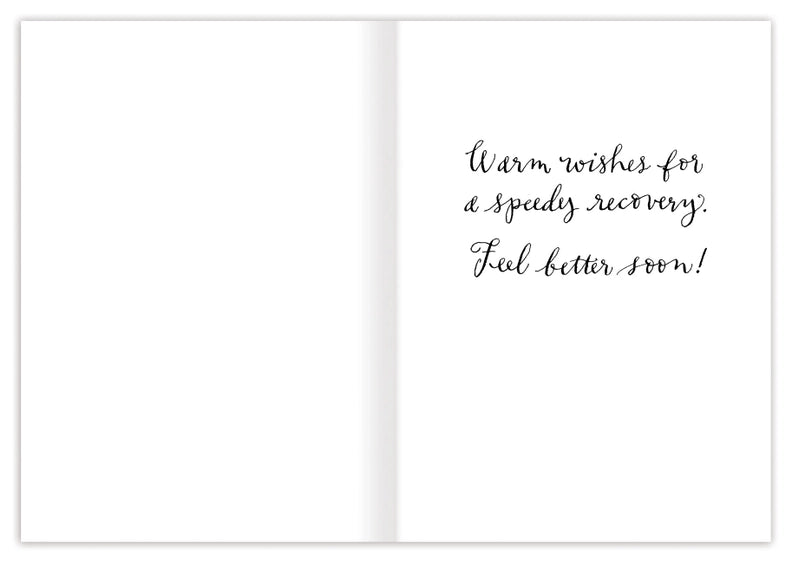 Warm wishes for
a speedy recovery.
Feel better soon!